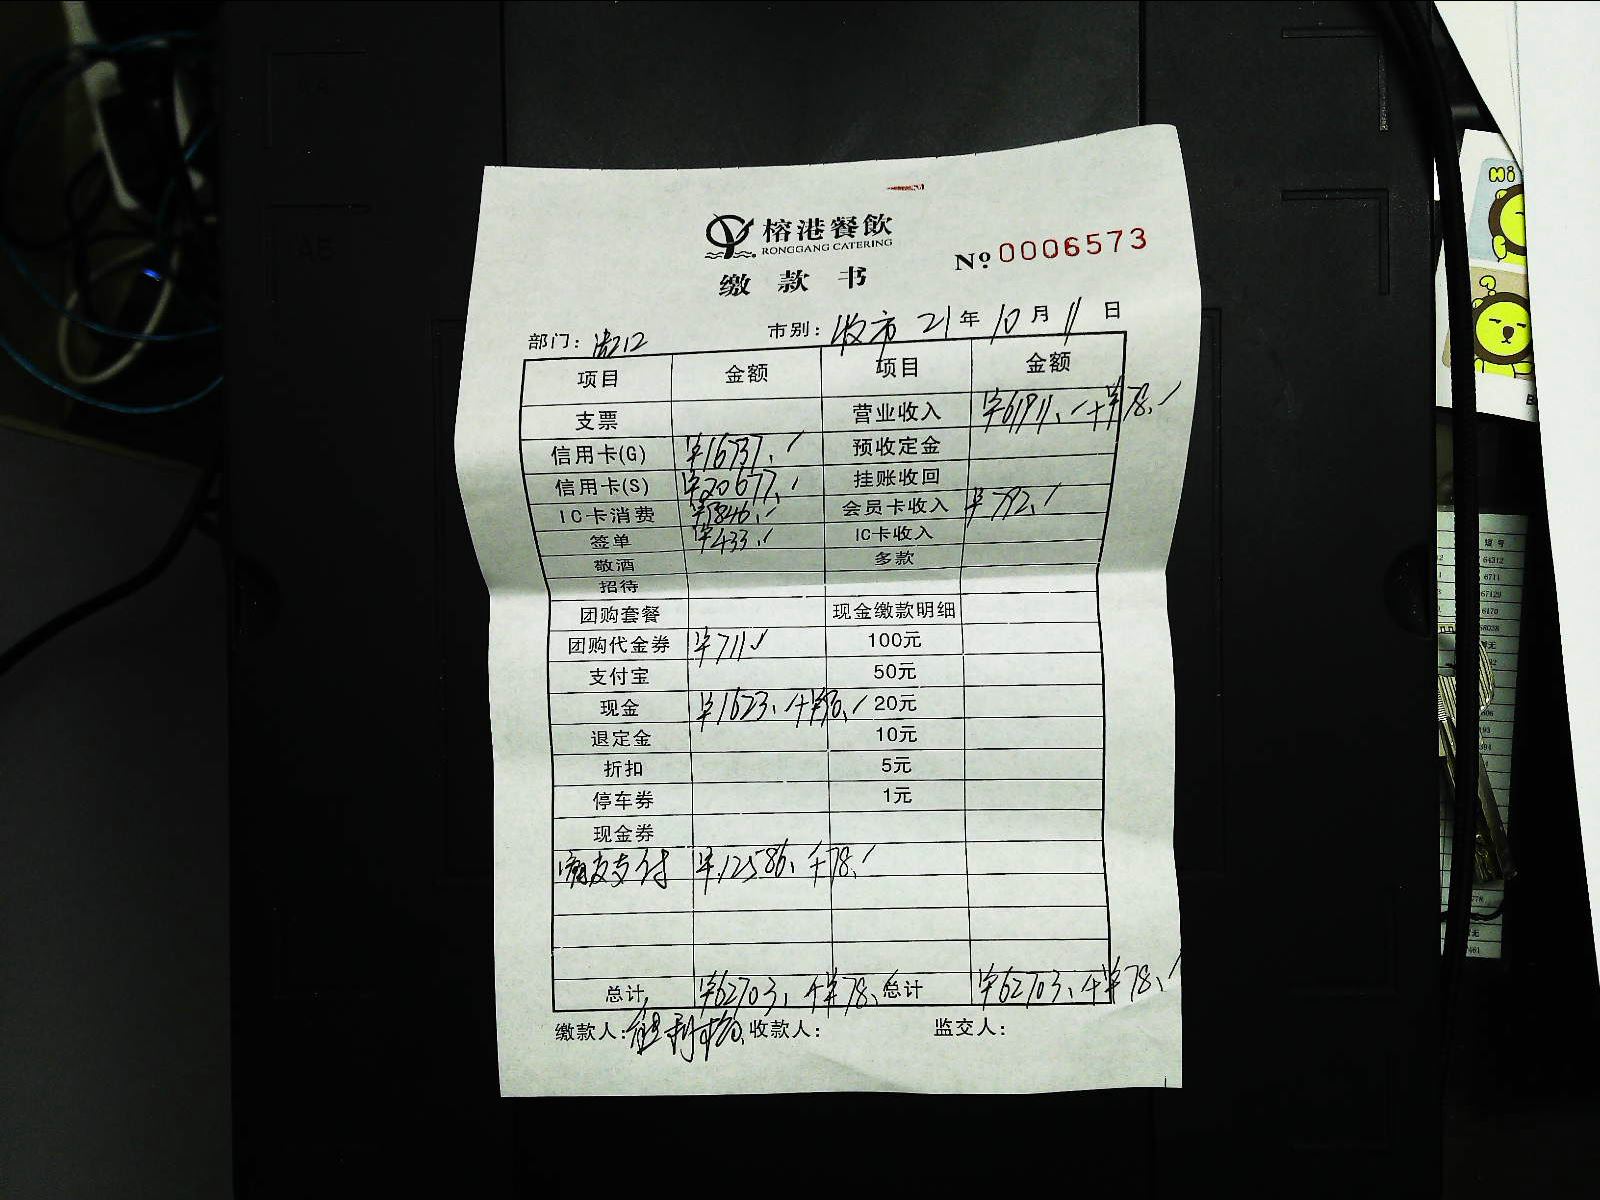 榕港餐飲
RONGGANG CATERING
缴款书
Nº 0006573
部门： 市别：收市 21年10月11日
项目 金额 项目 金额
支票 营业收入 ¥61911.✓+¥78.✓
信用卡(G) ¥16737.✓ 预收定金
信用卡(S) ¥20677.✓ 挂账收回
IC卡消费 ✓ 会员卡收入 ¥792.✓
签单 ¥433.✓ IC卡收入
敬酒 多款
招待
团购套餐 现金缴款明细
团购代金券 ¥711✓ 100元
支付宝 50元
现金 20元
退定金 10元
折扣 5元
停车券 1元
现金券
支付 ¥12586.+78.✓
总计 ¥62703.+¥78. 总计 ¥62703.+¥78.✓
缴款人： 收款人： 监交人：
Hi